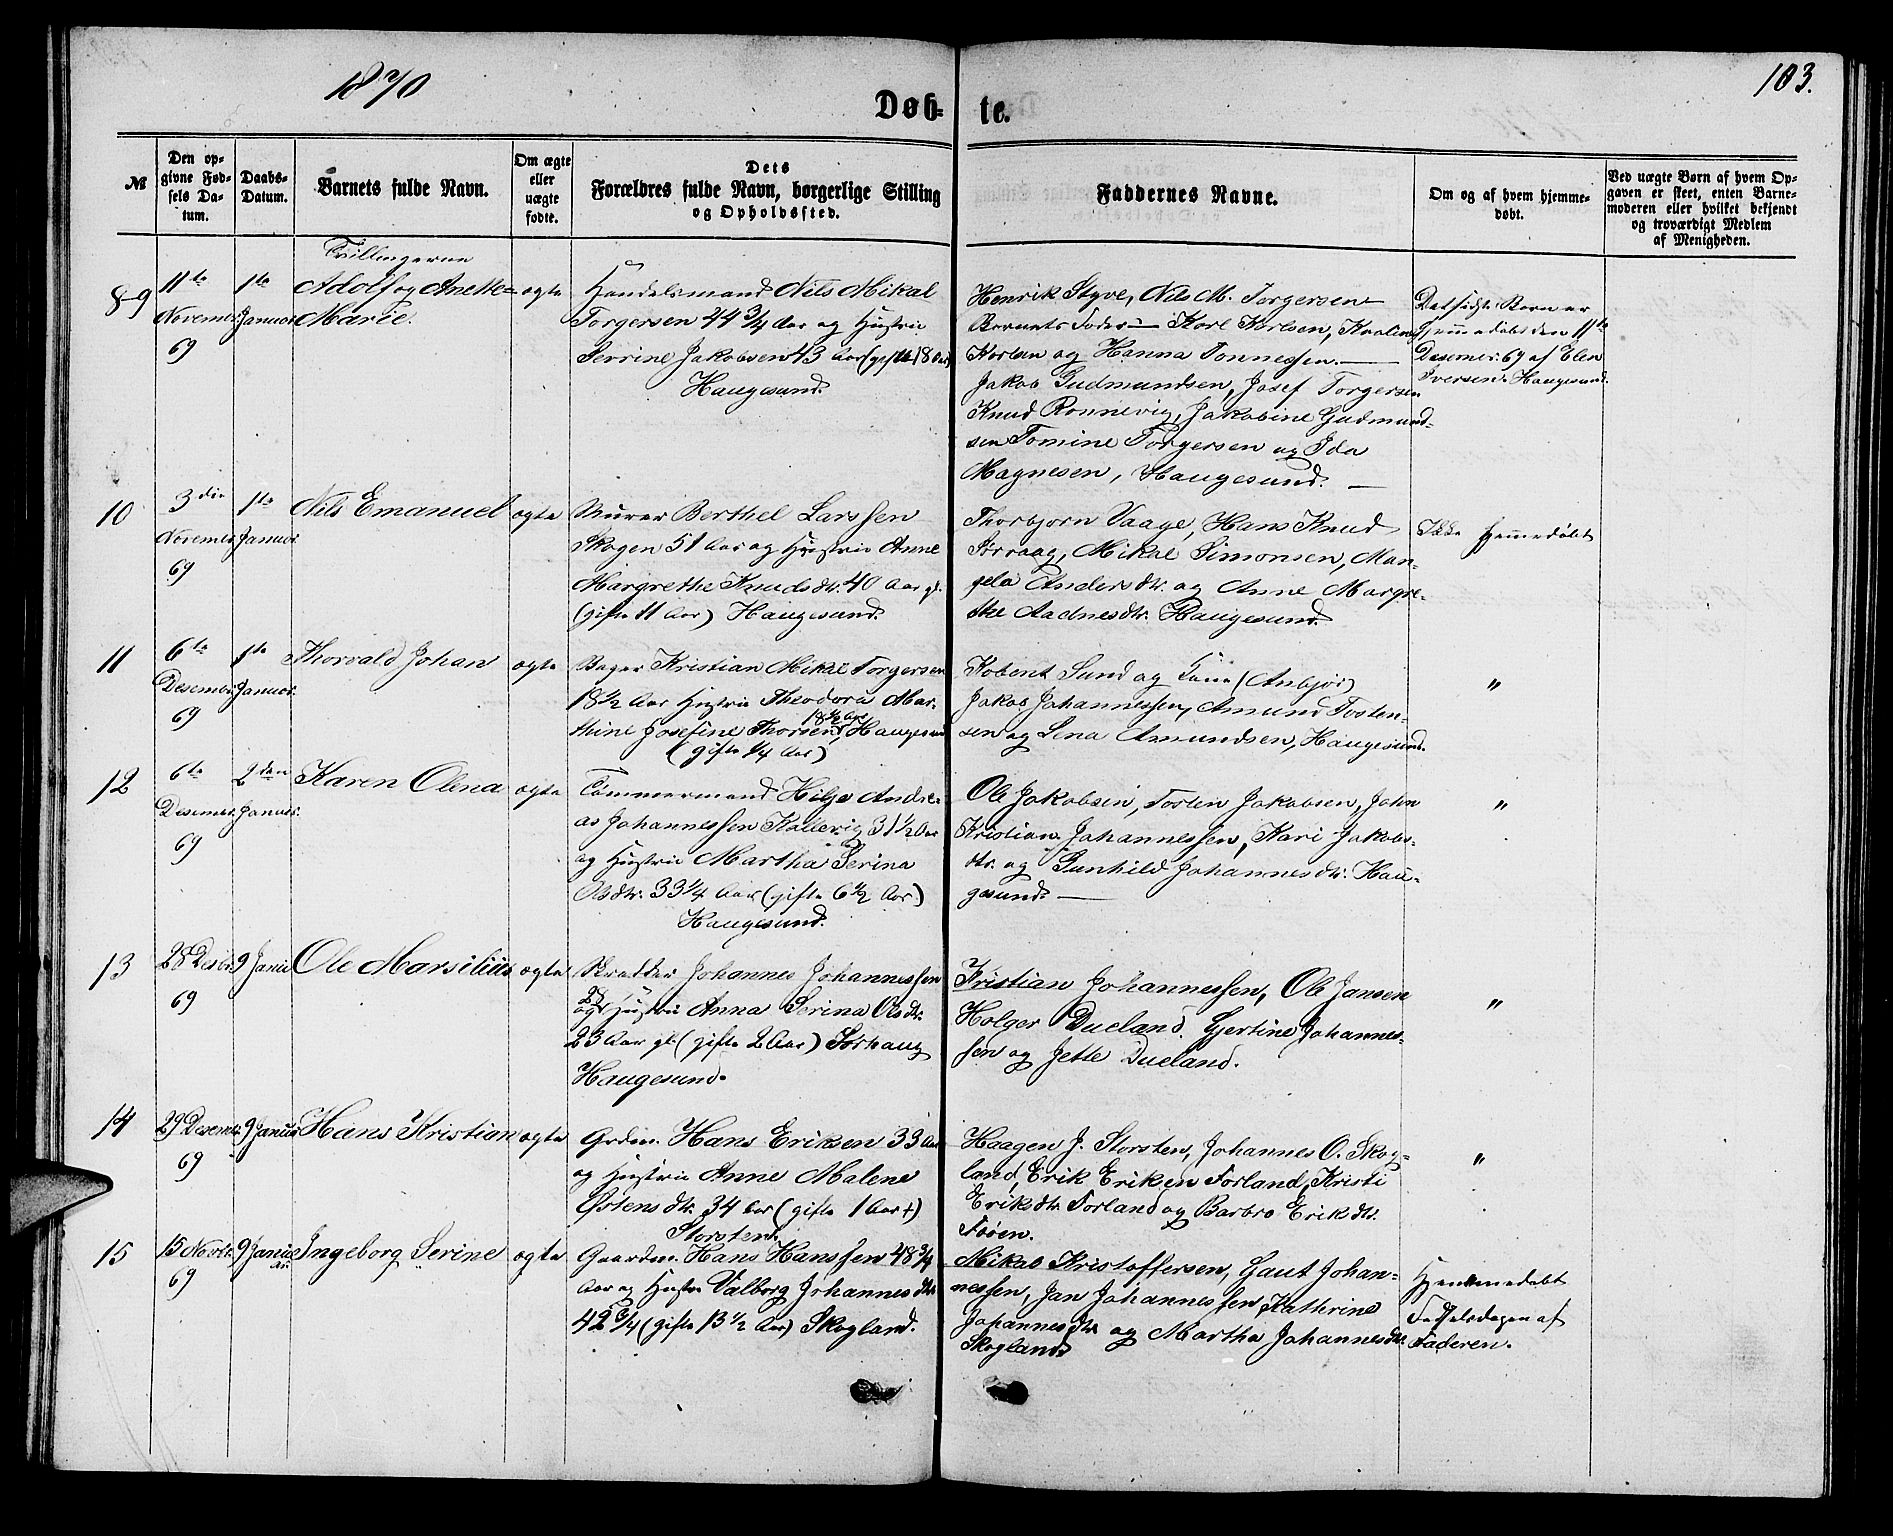 1870
103.
Døb- te.
№
Den opgivne Fødsels Datum.
Daabs-Datum.
Barnets fulde Navn.
Om ægte eller uægte fødte.
Dets Forældres fulde Navn, borgerlige Stilling og Opholdssted.
Faddernes Navne.
Om og af hvem hjemmedøbt.
Ved uægte Børn af hvem Opgaven er skeet, enten Barnemoderen eller hvilket bekjendt og troværdigt Medlem af Menigheden.
8-9
11te Novemer 69
1te Januar
Tvillingerne
Adolf og Anette
Marie.
ægte
Handelsmand Nils Mikal
Torgersen 44 3/4 Aar og Hustrue
Serrine Jakobsen 43 Aar (gifte 18 Aar)
Haugesund.
Henrik Styve, Nils M. Torgersen
Barnets Fader — Karl Karlsen,
Karlsen og Hanna Tonnessen. —
Jakob Gudmundsen, Josef Torgersen
Knud Rønnevig, Jakobine Gudmund-
sen Tomine Torgersen og Ida
Magnesen, Haugesund. —
Det sidste Barn er
Hjemmedøbt den 11te
Desemer 69 af Elen
Iversen. Haugesund.
10
3die Novemer 69
1te Januar
Nils Emanuel
ægte
Murer Berthel Larssen
Skogen 51 Aar og Hustrue Anne
Margrethe Knudsdtr. 40 Aar gl.
(gifte 11 Aar) Haugesund.
Thorbjørn Vaage, Hans Knud
Sørvaag, Mikal Simonsen, Man-
gela Andersdtr. og Anne Margre-
the Aadnesdtr. Haugesund.
Ikke Hjemmedøbt
11
6te Desemer 69
1te Januar.
Thorvald Johan
ægte
Bager Kristian Mikal Torgersen
18 1/2 Aar Hustrue Theodora Mar-
thine Josefine Thorsen 18 1/2 Aar, Haugesund
(gifte 1/4 Aar)
Kobent Sund og (Anbjør)
Jakob Johannessen, Amund Tosten-
sen og Lena Amundsen, Haugesund.
"
12
6te Desemer 69
2den Januar.
Karen Olena
ægte
Tømmermand Hilge Andre-
as Johannessen Kallevig 31 1/2 Aar
og Hustrue Martha Serina
Olsdtr. 33 1/4 Aar (gifte 6 1/2 Aar)
Haugesund.
Ole Jakobsen, Torsten Jakobsen, John
Kristian Johannessen, Kari Jakobs-
dtr. og Gunhild Johannesdtr. Hau-
gesund. —
"
13
28 Desbr. 69
9 Janu
Ole Marsilius
ægte
Skrædder Johannes Johannessen
28 og Hustrue Anna Serina Olsdtr.
23 Aar gl. (gifte 2 Aar) Sørhaug
Haugesund.
Kristian Johannessen, Ole Jansen
Holger Dueland. Gjertine Johannes-
sen og Jette Dueland.
"
14
29 Desemr. 69
9 Januar
Hans Kristian
ægte
Grdm. Hans Eriksen 33 Aar
og Hustrue Anne Malene
Østensdtr. 34 Aar (gifte 1 Aar +)
Storsten.
Haagen J. Storsten, Johannes O. Skog-
land, Erik Eriksen Førland, Kristi
Eriksdtr. Førland og Barbro Eriksdtr.
Føøen.
"
15
15 Novbr. 69
9 Januar
Ingeborg Serine
ægte
Gaardm. Hans Hanssen 48 3/4
Aar og Hustru Valborg Johannesdtr.
42 3/4 (gifte 13 1/2 Aar) Skogland.
Mikal Kristoffersen, Gaut Johan-
nessen, Jan Johannessen, Kathrine
Johannesdtr. og Martha Johannesdtr.
Skogland.
Hjemmedøbt
Fødselsdagen af
Faderen.